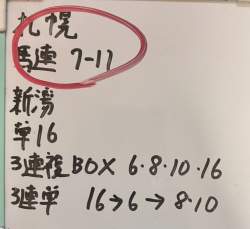 札幌
馬連 7-11
新潟
単16
3連複BOX 6・8・10・16
3連単 16→6→8・10